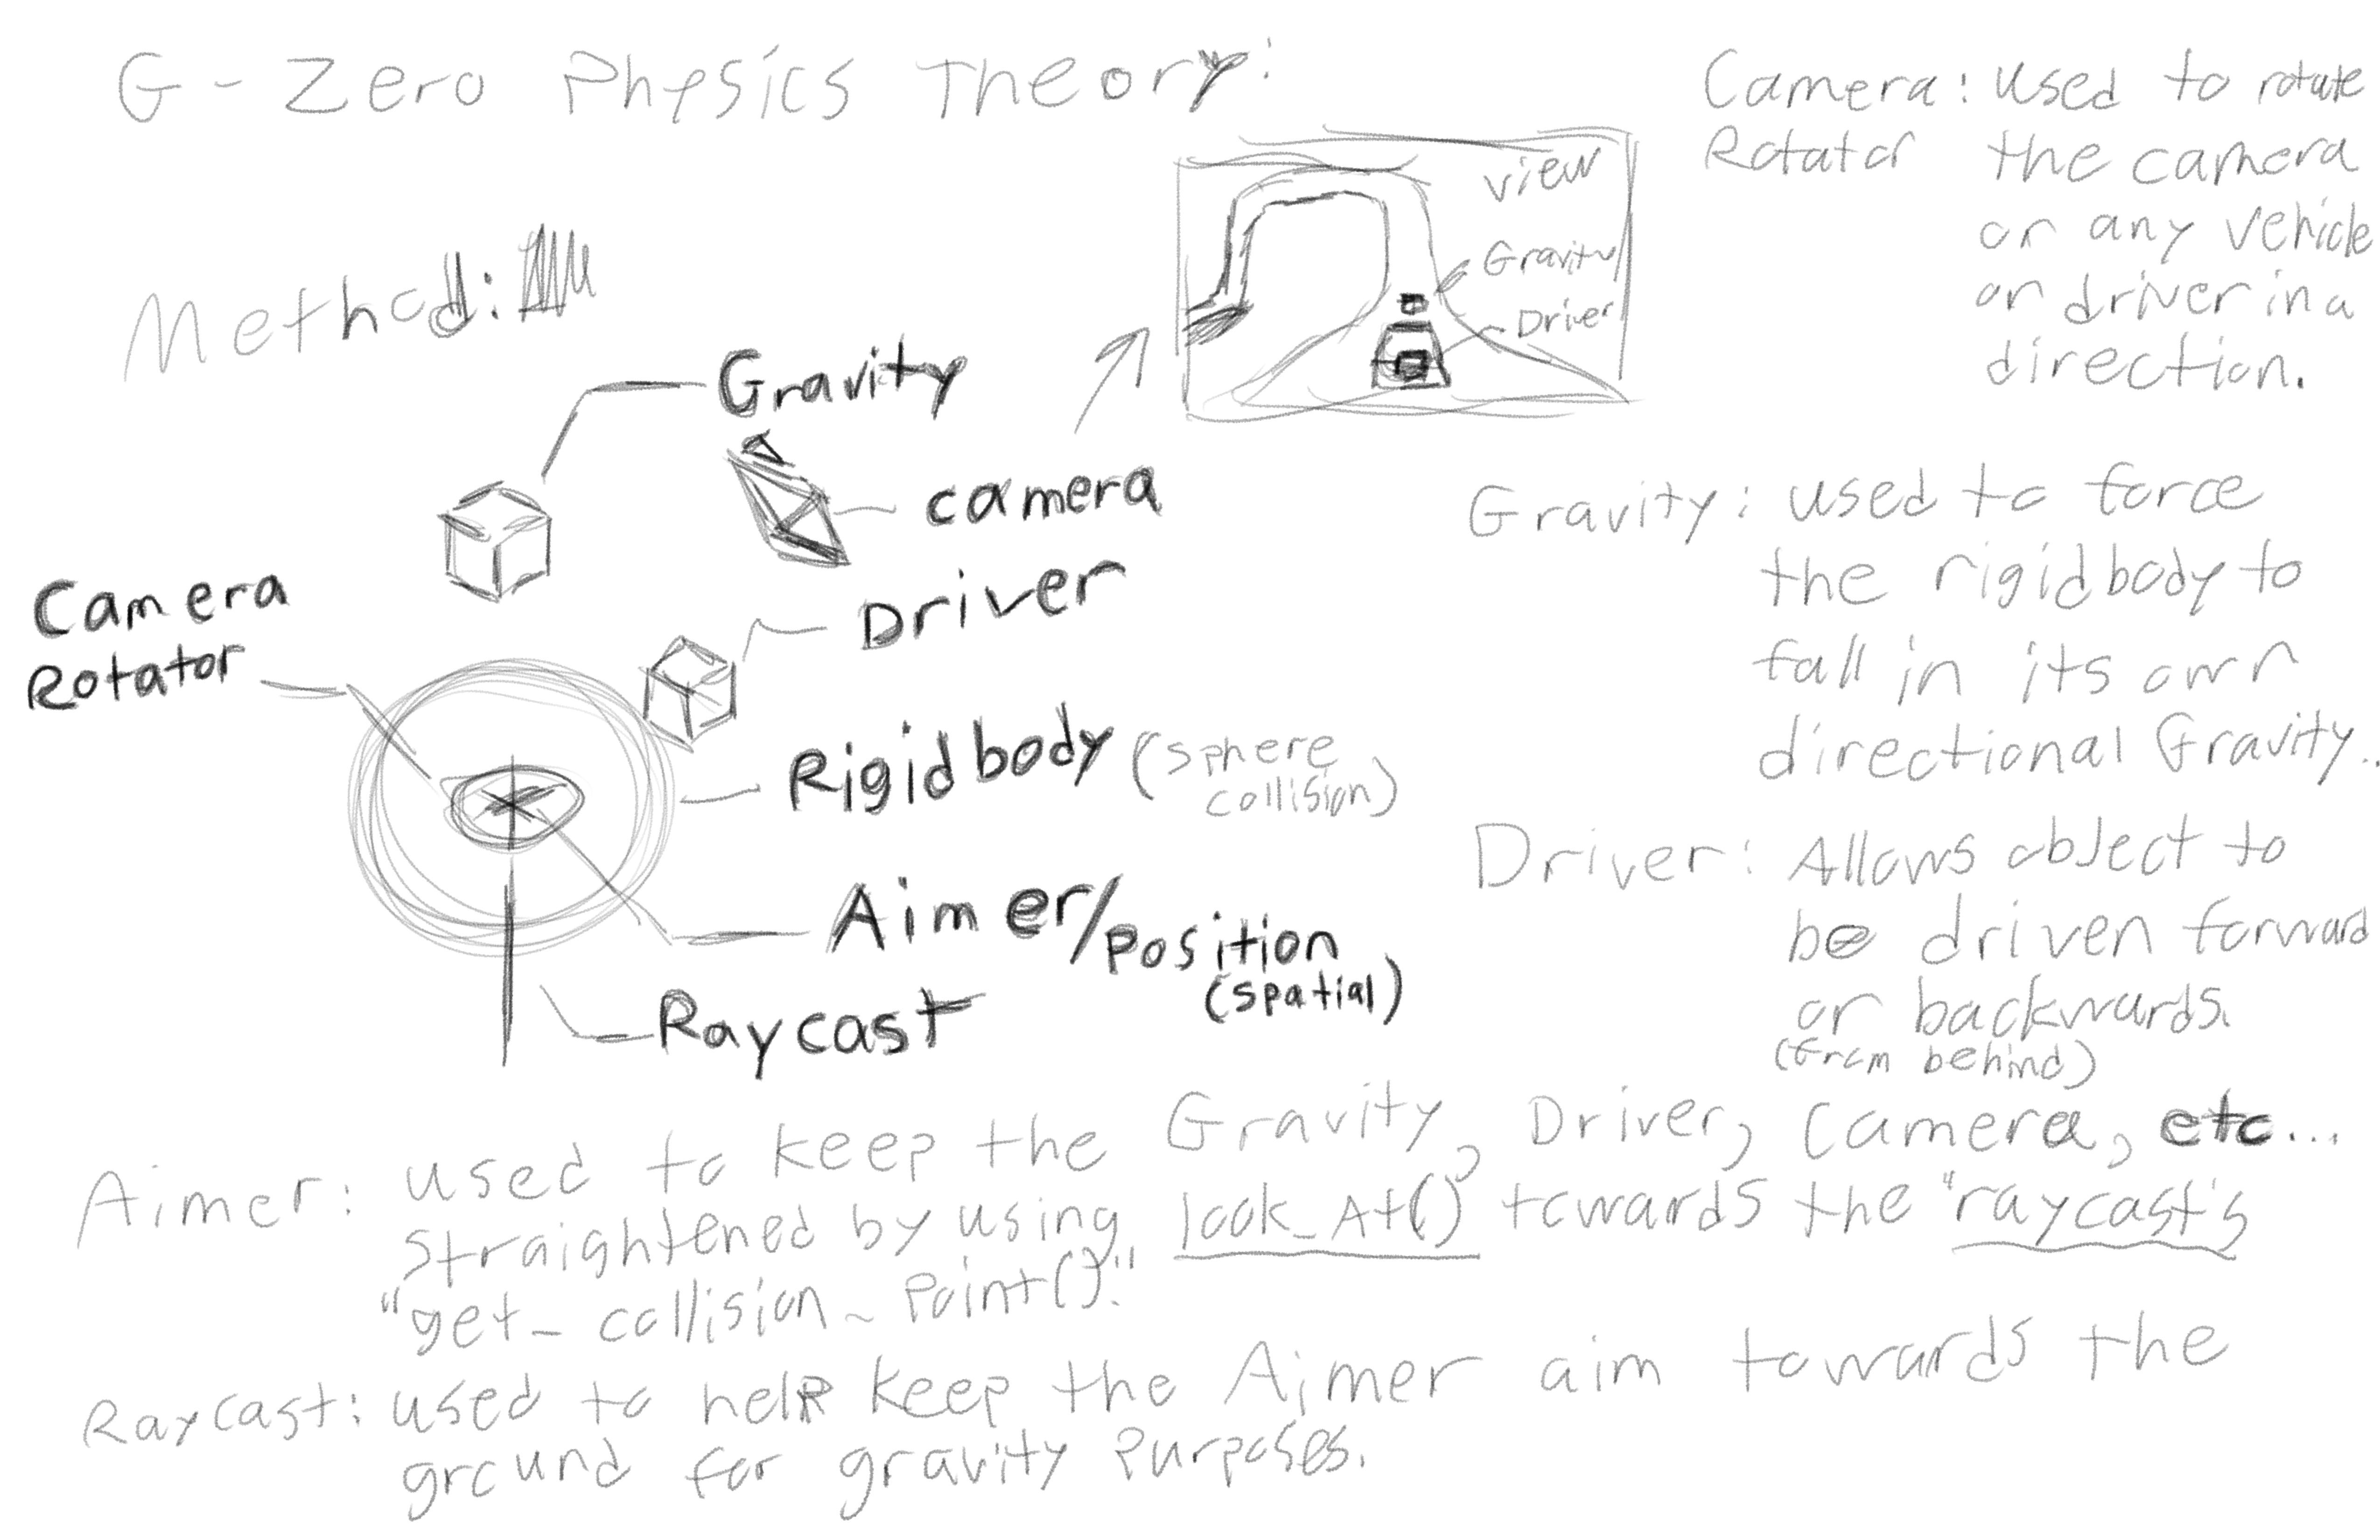 G-Zero Physics Theory:
Method:
view
Gravity
Driver
Gravity
camera
Driver
Camera
Rotator
Rigidbody (sphere
collision)
Aimer/Position
(spatial)
Raycast
Camera: used to rotate
Rotator the camera
or any vehicle
or driver in a
direction.
Gravity: used to force
the rigidbody to
fall in its own
directional Gravity..
Driver: Allows object to
be driven forward
or backwards.
(from behind)
Aimer: used to keep the Gravity, Driver, Camera, etc...
straightened by using look_At() towards the "raycast's
"get_collision_point()."
Raycast: used to help keep the Aimer aim towards the
ground for gravity purposes.